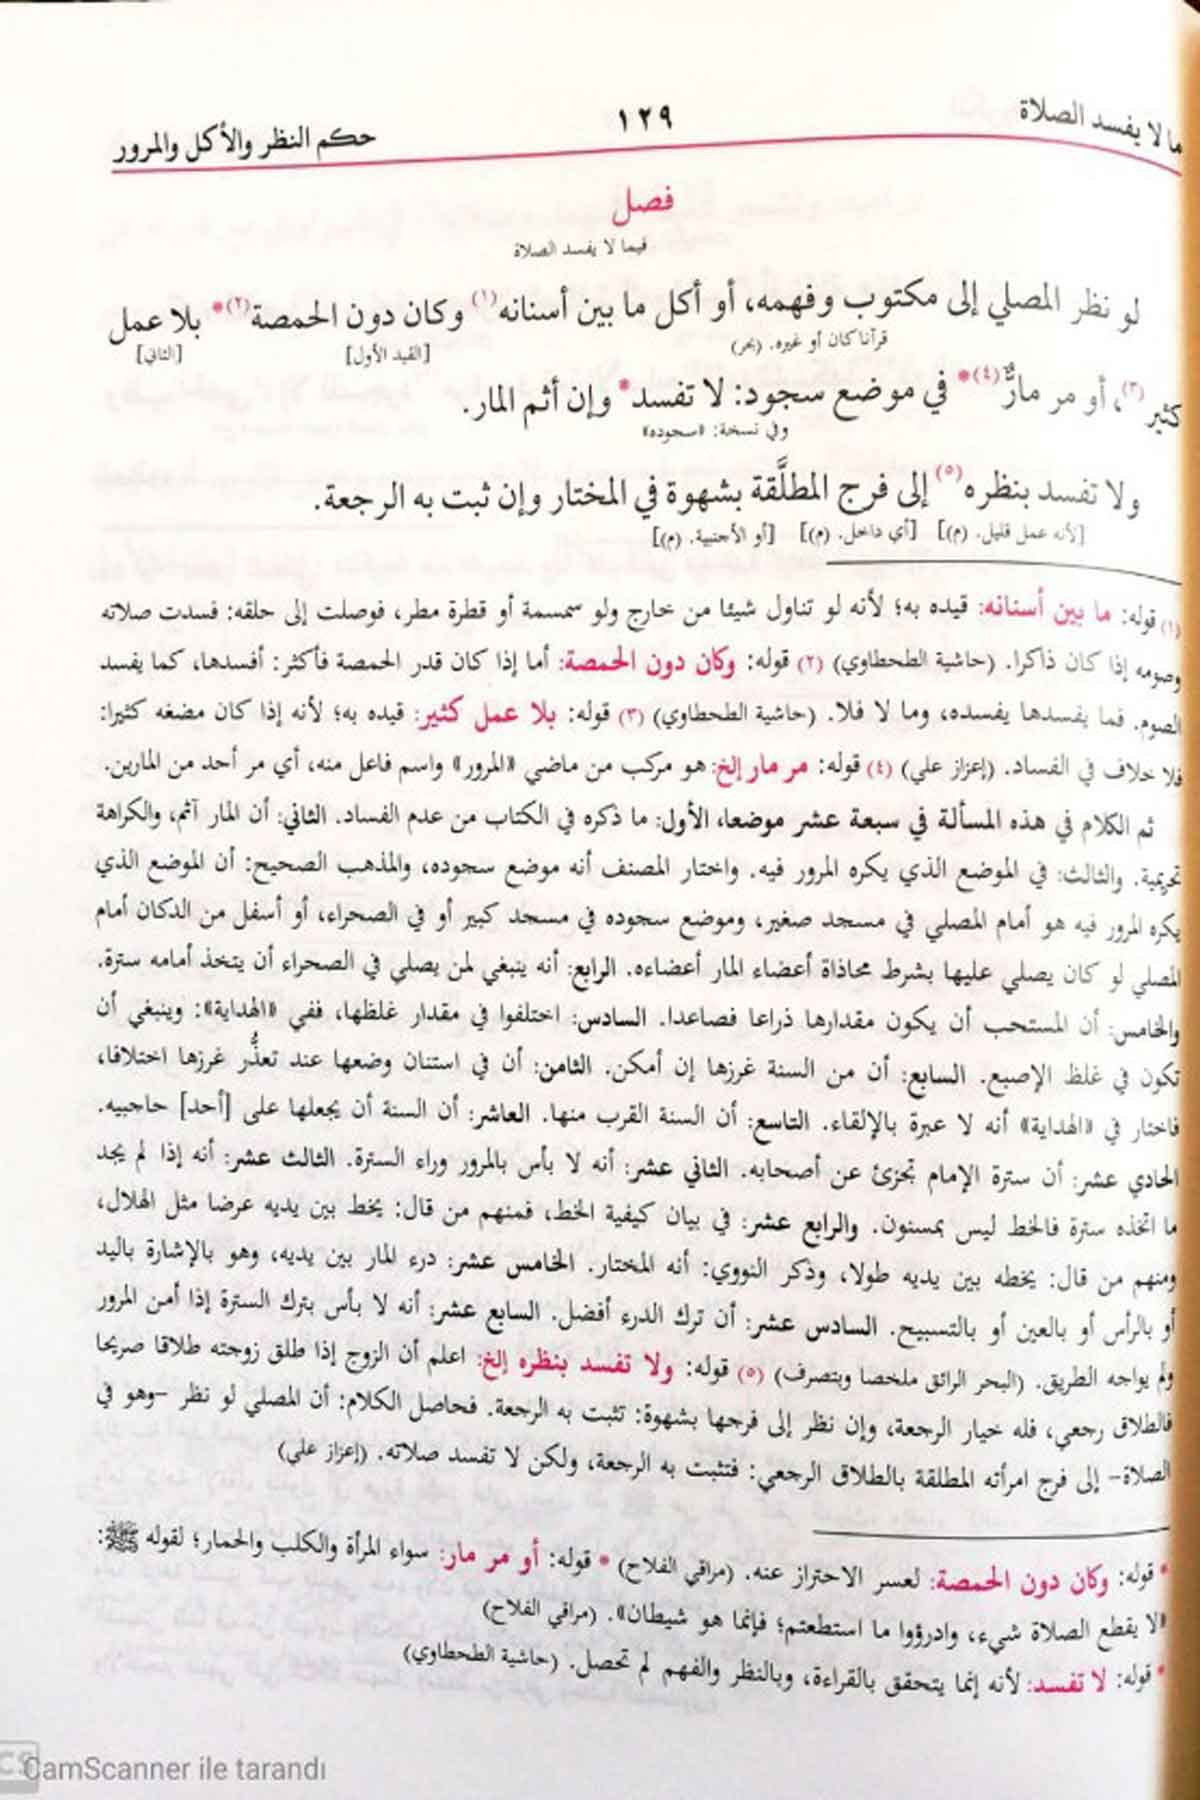 ما لا يفسد الصلاة ١٢٩ حكم النظر والأكل والمرور
فصل
فيما لا يفسد الصلاة
لو نظر المصلي إلى مكتوب وفهمه، أو أكل ما بين أسنانه(١) وكان دون الحمصة(٢)* بلا عمل
قرآنا كان أو غيره. (بحر) [القيد الأول] [الثاني]
كثير(٣)، أو مر مارٌّ(٤)* في موضع سجود: لا تفسد* وإن أثم المار.
وفي نسخة: «سجوده»
ولا تفسد بنظره(٥) إلى فرج المطلَّقة بشهوة في المختار وإن ثبت به الرجعة.
[لأنه عمل قليل. (م)] [أي داخل. (م)] [أو الأجنبية. (م)]
(١) قوله: ما بين أسنانه: قيده به؛ لأنه لو تناول شيئا من خارج ولو سمسمة أو قطرة مطر، فوصلت إلى حلقه: فسدت صلاته
وصومه إذا كان ذاكرا. (حاشية الطحطاوي) (٢) قوله: وكان دون الحمصة: أما إذا كان قدر الحمصة فأكثر: أفسدها، كما يفسد
الصوم. فما يفسدها يفسده، وما لا فلا. (حاشية الطحطاوي) (٣) قوله: بلا عمل كثير: قيده به؛ لأنه إذا كان مضغه كثيرا:
فلا خلاف في الفساد. (إعزاز علي) (٤) قوله: مر مار إلخ: هو مركب من ماضي «المرور» واسم فاعل منه، أي مر أحد من المارين.
ثم الكلام في هذه المسألة في سبعة عشر موضعا، الأول: ما ذكره في الكتاب من عدم الفساد. الثاني: أن المار آثم، والكراهة
تحريمية. والثالث: في الموضع الذي يكره المرور فيه. واختار المصنف أنه موضع سجوده، والمذهب الصحيح: أن الموضع الذي
يكره المرور فيه هو أمام المصلي في مسجد صغير، وموضع سجوده في مسجد كبير أو في الصحراء، أو أسفل من الدكان أمام
المصلي لو كان يصلي عليها بشرط محاذاة أعضاء المار أعضاءه. الرابع: أنه ينبغي لمن يصلي في الصحراء أن يتخذ أمامه سترة.
والخامس: أن المستحب أن يكون مقدارها ذراعا فصاعدا. السادس: اختلفوا في مقدار غلظها، ففي «الهداية»: وينبغي أن
تكون في غلظ الإصبع. السابع: أن من السنة غرزها إن أمكن. الثامن: أن في استنان وضعها عند تعذُّر غرزها اختلافا،
فاختار في «الهداية» أنه لا عبرة بالإلقاء. التاسع: أن السنة القرب منها. العاشر: أن السنة أن يجعلها على [أحد] حاجبيه.
الحادي عشر: أن سترة الإمام تجزئ عن أصحابه. الثاني عشر: أنه لا بأس بالمرور وراء السترة. الثالث عشر: أنه إذا لم يجد
ما اتخذه سترة فالخط ليس بمسنون. والرابع عشر: في بيان كيفية الخط، فمنهم من قال: يخط بين يديه عرضا مثل الهلال،
ومنهم من قال: يخطه بين يديه طولا، وذكر النووي: أنه المختار. الخامس عشر: درء المار بين يديه، وهو بالإشارة باليد
أو بالرأس أو بالعين أو بالتسبيح. السادس عشر: أن ترك الدرء أفضل. السابع عشر: أنه لا بأس بترك السترة إذا أمن المرور
ولم يواجه الطريق. (البحر الرائق ملخصا وبتصرف) (٥) قوله: ولا تفسد بنظره إلخ: اعلم أن الزوج إذا طلق زوجته طلاقا صريحا
فالطلاق رجعي، فله خيار الرجعة، وإن نظر إلى فرجها بشهوة: تثبت به الرجعة. فحاصل الكلام: أن المصلي لو نظر -وهو في
الصلاة- إلى فرج امرأته المطلقة بالطلاق الرجعي: فتثبت به الرجعة، ولكن لا تفسد صلاته. (إعزاز علي)
* قوله: وكان دون الحمصة: لعسر الاحتراز عنه. (مراقي الفلاح) * قوله: أو مر مار: سواء المرأة والكلب والحمار؛ لقوله ﷺ:
«لا يقطع الصلاة شيء، وادرؤوا ما استطعتم؛ فإنما هو شيطان». (مراقي الفلاح)
* قوله: لا تفسد: لأنه إنما يتحقق بالقراءة، وبالنظر والفهم لم تحصل. (حاشية الطحطاوي)
CS CamScanner ile tarandı